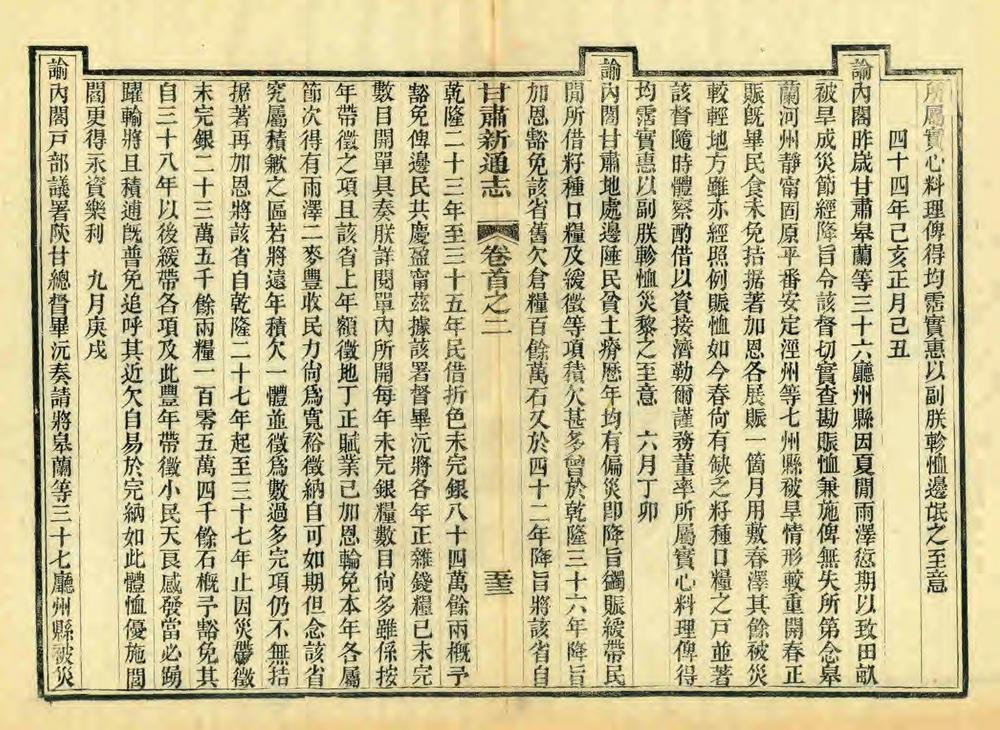 所屬實心料理俾得均霑實惠以副朕軫恤邊氓之至意
四十四年己亥正月己丑
諭內閣昨歲甘肅皋蘭等三十六廳州縣因夏閒雨澤愆期以致田畝
被旱成災節經降旨令該督切實查勘賑恤兼施俾無失所第念皋
蘭河州靜甯固原平番安定涇州等七州縣被旱情形較重開春正
賑旣畢民食未免拮据著加恩各展賑一箇月用敷春澤其餘被災
較輕地方雖亦經照例賑恤如今春尙有缺乏籽種口糧之戸並著
該督隨時體察酌借以資接濟勒爾謹務董率所屬實心料理俾得
均霑實惠以副朕軫恤災黎之至意 六月丁卯
諭內閣甘肅地處邊陲民貧土瘠歷年均有偏災卽降旨蠲賑緩帶民
閒所借籽種口糧及緩徵等項積欠甚多曾於乾隆三十六年降旨
加恩豁免該省舊欠倉糧百餘萬石又於四十二年降旨將該省自
甘肅新通志 卷首之二 五三
乾隆二十三年至三十五年民借折色未完銀八十四萬餘兩槪予
豁免俾邊民共慶盈甯茲據該署督畢沅將各年正雜錢糧已未完
數目開單具奏朕詳閱單內所開每年未完銀糧數目尙多雖係按
年帶徵之項且該省上年額徵地丁正賦業已加恩輪免本年各屬
節次得有雨澤二麥豐收民力尙爲寬裕徵納自可如期但念該省
究屬積歉之區若將遠年積欠一體並徵爲數過多完項仍不無拮
据著再加恩將該省自乾隆二十七年起至三十七年止因災帶徵
未完銀二十三萬五千餘兩糧一百零五萬四千餘石槪予豁免其
自三十八年以後緩帶各項及此豐年帶徵小民天良感發當必踴
躍輸將且積逋旣普免追呼其近欠自易於完納如此體恤優施閭
閻更得永資樂利 九月庚戌
諭內閣戸部議署陝甘總督畢沅奏請將皋蘭等三十七廳州縣被災